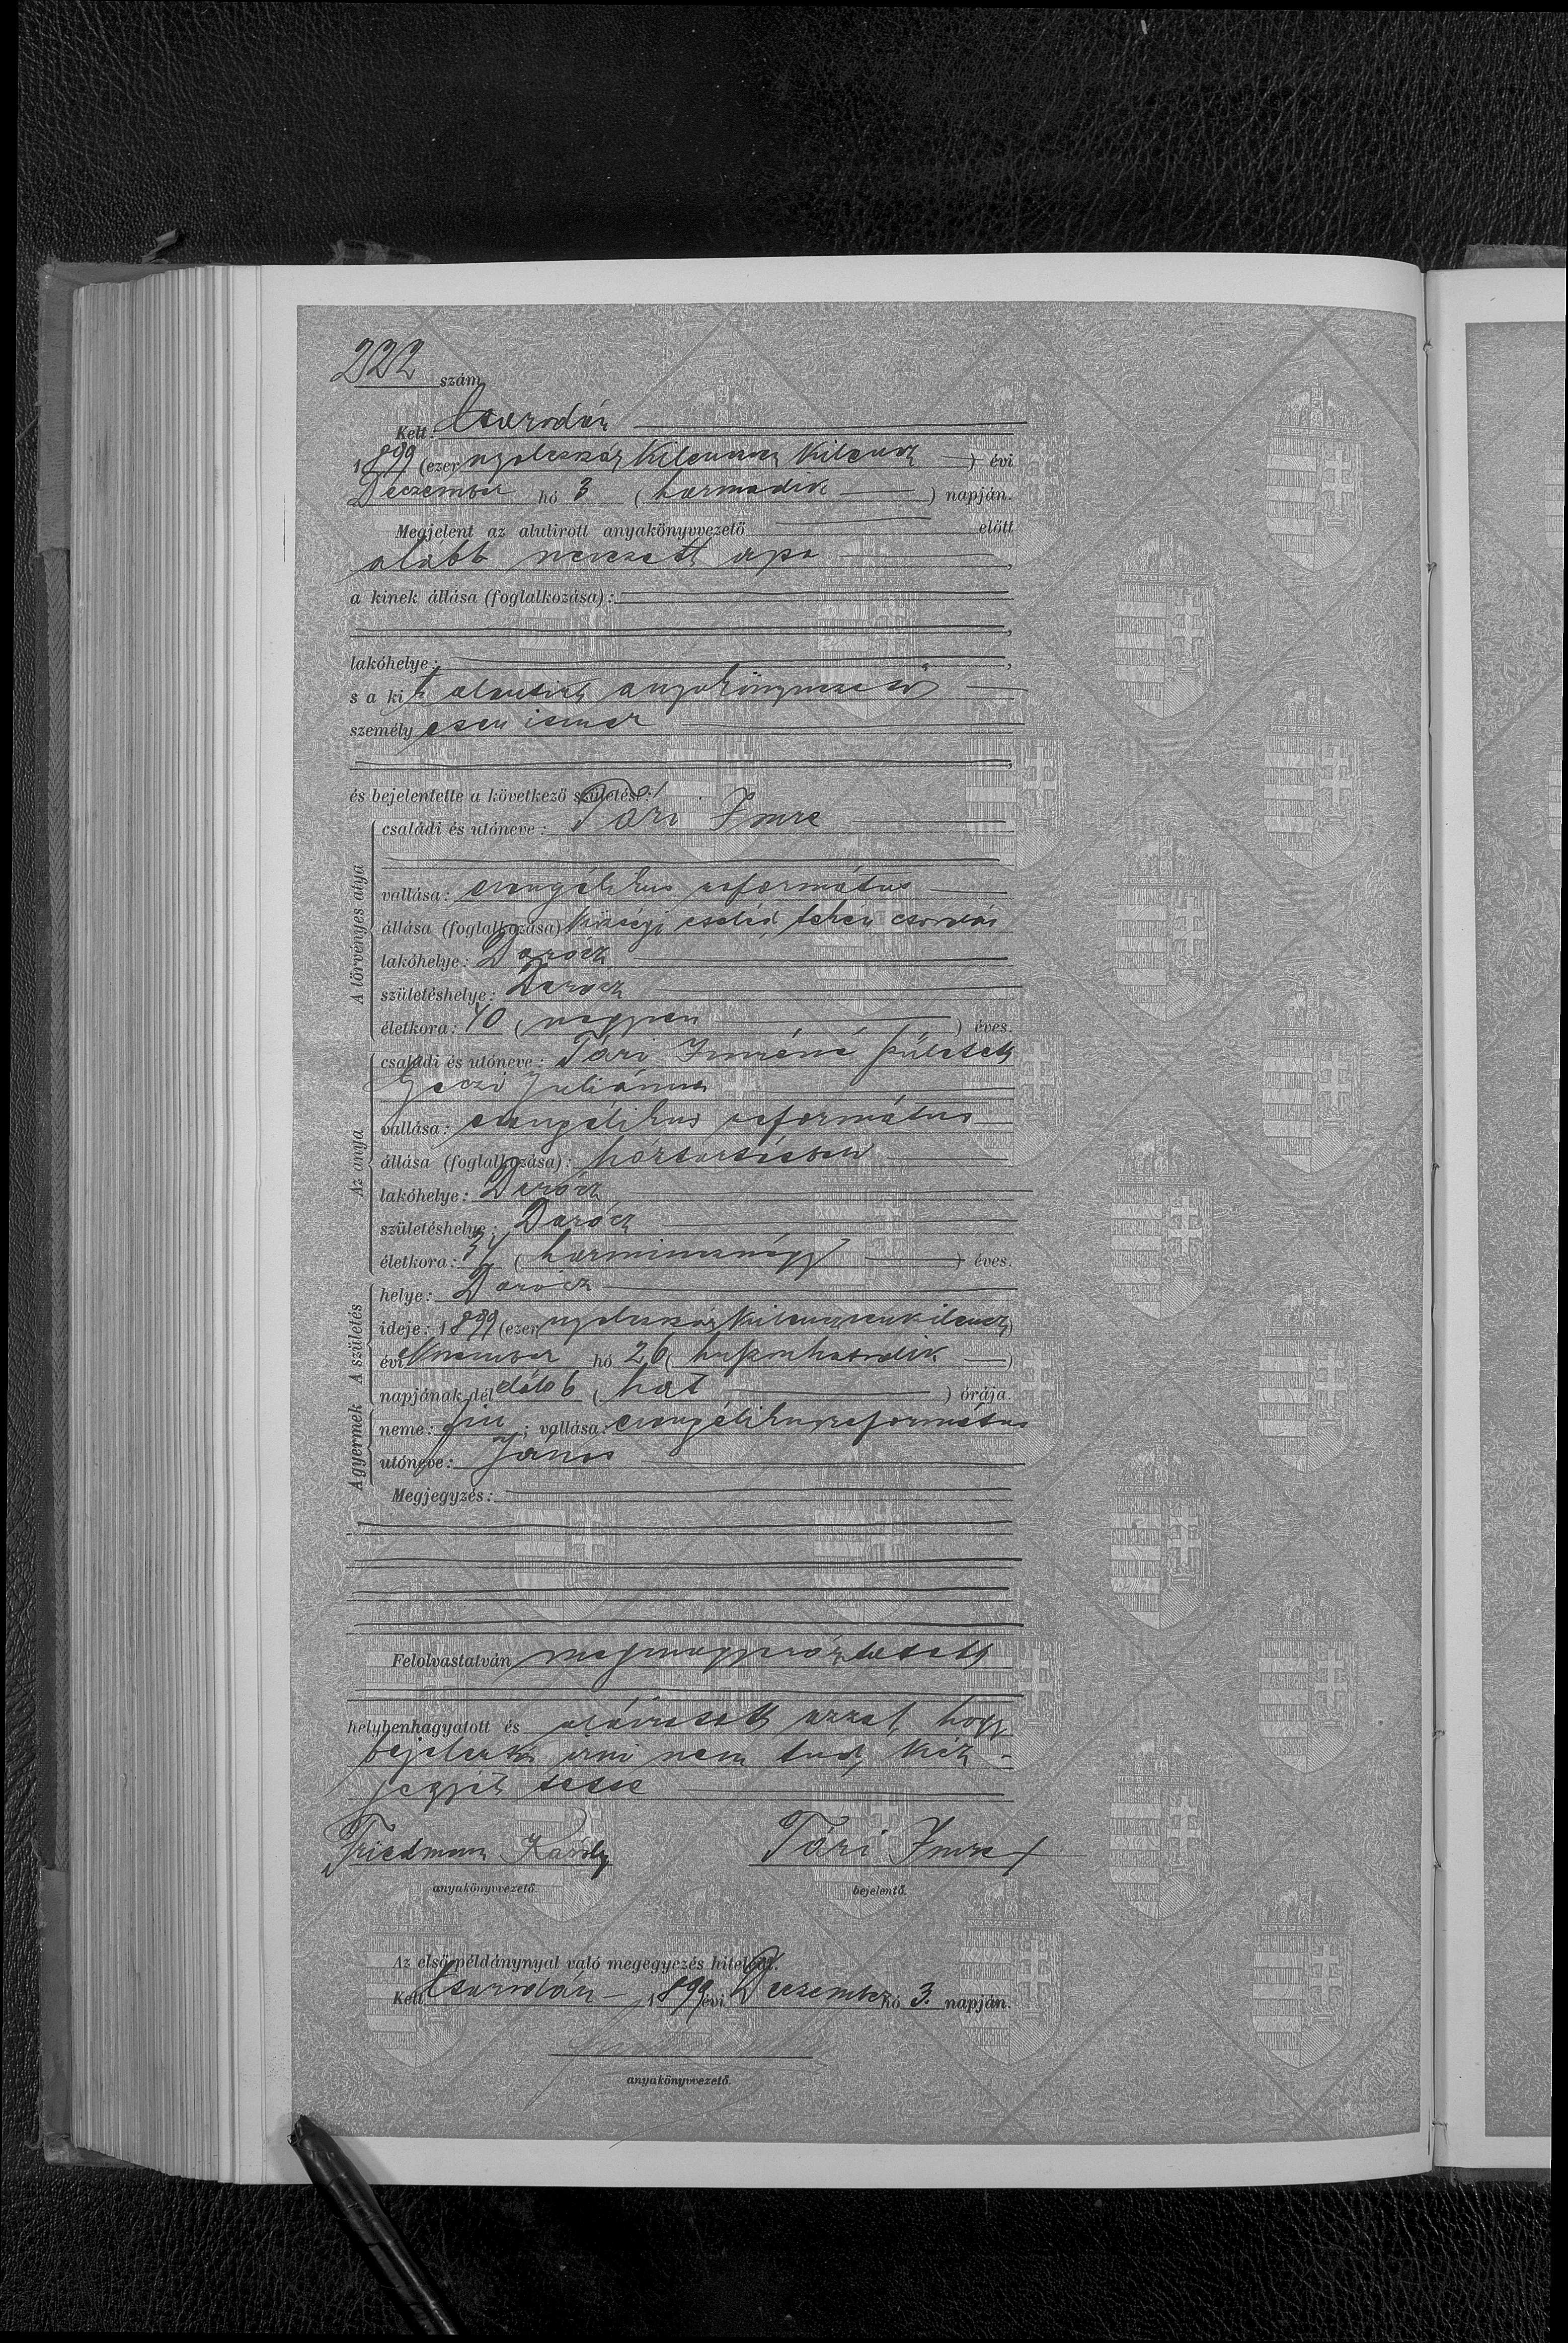 222 szám
Kelt: Csarodán
1899 (ezer nyolczszáz kilenczven kilencz) évi
Deczember hó 3 (harmadik) napján.
Megjelent az alulirott anyakönyvvezető előtt
alább nevezett apa,
a kinek állása (foglalkozása):
lakóhelye:
s a kit alulirott anyakönyvvezető
személyesen ismer
és bejelentette a következő születést:
A törvényes atya
családi és utóneve: Tári Imre
vallása: evangélikus református
állása (foglalkozása) községi cseléd, tehén csordás
lakóhelye: Darócz
születéshelye: Darócz
életkora: 40 (negyven) éves.
Az anya
családi és utóneve: Tári Imréné született
Géczi Juliánna
vallása: evangélikus református
állása (foglalkozása): háztartásban
lakóhelye: Darócz
születéshelye: Darócz
életkora: 34 (harmincznégy) éves.
A születés
helye: Darócz
ideje: 1899 (ezer nyolczszáz kilenczvenkilencz)
évi November hó 26 (huszonhatodik)
napjának dél előtt 6 (hat) órája.
A gyermek
neme: fiu; vallása: evangélikus református
utóneve: János
Megjegyzés:
Felolvastatván megmagyaráztatott
helybenhagyatott és aláiratott azzal, hogy
bejelentő irni nem tud, kéz-
jegyét tette
Friedmann Károly Tári Imre +
anyakönyvvezető. bejelentő.
Az első példánynyal való megegyezés hiteléül.
Kelt Csarodán 1899 évi Deczember hó 3. napján.
anyakönyvvezető.